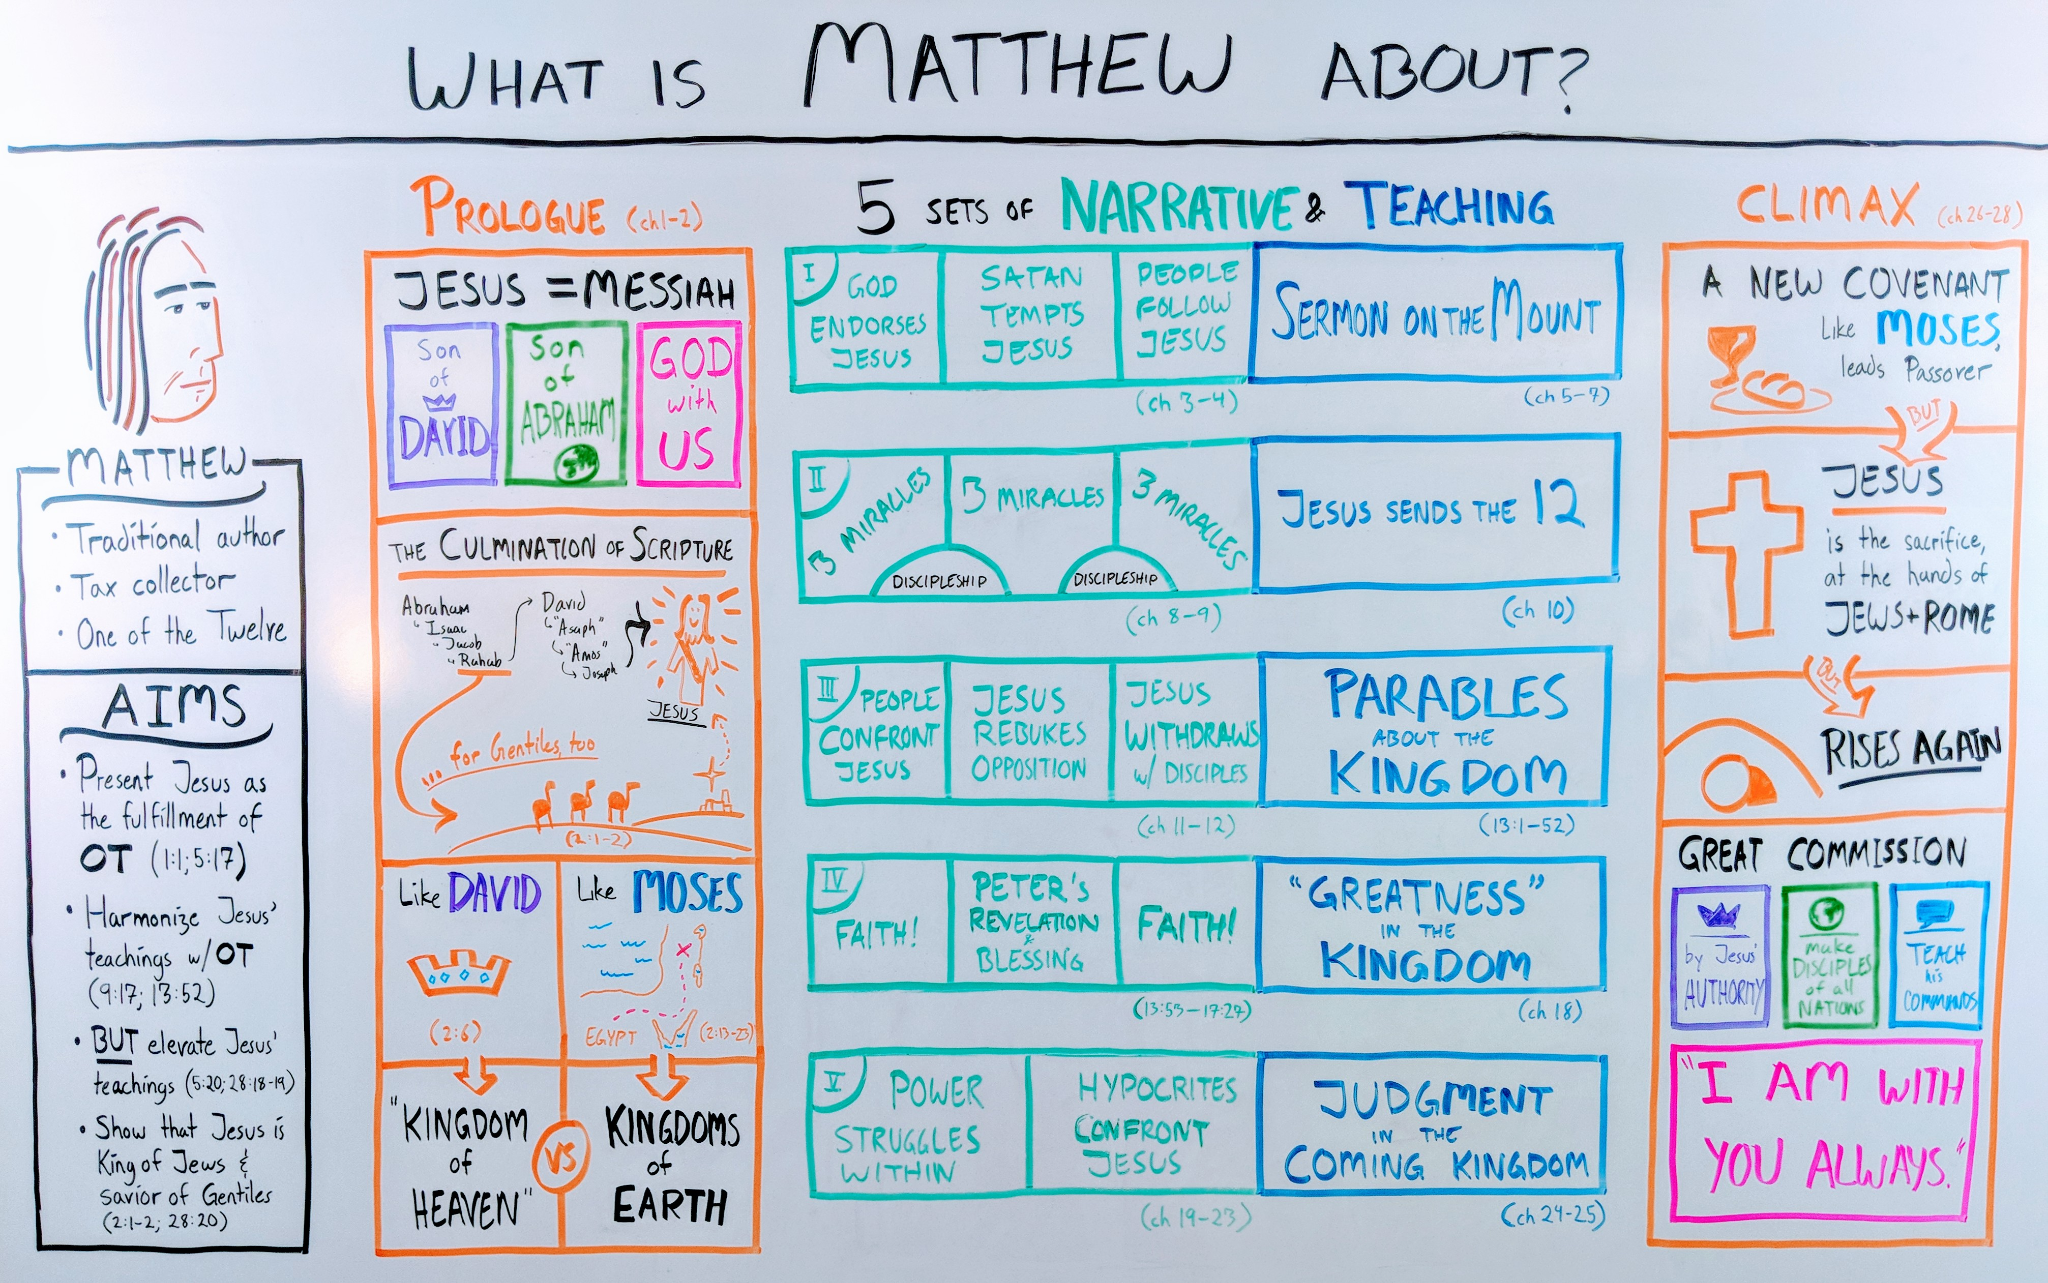 WHAT IS MATTHEW ABOUT?
MATTHEW
• Traditional author
• Tax collector
• One of the Twelve
AIMS
• Present Jesus as
the fulfillment of
OT (1:1; 5:17)
• Harmonize Jesus'
teachings w/ OT
(9:17; 13:52)
• BUT elevate Jesus'
teachings (5:20; 28:18-19)
• Show that Jesus is
King of Jews &
savior of Gentiles
(2:1-2; 28:20)
PROLOGUE (ch 1-2)
JESUS = MESSIAH
Son
of
DAVID
Son
of
ABRAHAM
GOD
with
US
THE CULMINATION OF SCRIPTURE
Abraham
Isaac
Jacob
Rahab
David
"Asaph"
"Amos"
Joseph
JESUS
... for Gentiles, too
(2:1-2)
Like DAVID
(2:6)
Like MOSES
EGYPT
(2:13-23)
"KINGDOM
of
HEAVEN"
VS
KINGDOMS
of
EARTH
5 SETS OF NARRATIVE & TEACHING
I
GOD
ENDORSES
JESUS
SATAN
TEMPTS
JESUS
PEOPLE
FOLLOW
JESUS
(ch 3-4)
SERMON ON THE MOUNT
(ch 5-7)
II
3 MIRACLES
DISCIPLESHIP
3 MIRACLES
DISCIPLESHIP
3 MIRACLES
(ch 8-9)
JESUS SENDS THE 12
(ch 10)
III
PEOPLE
CONFRONT
JESUS
JESUS
REBUKES
OPPOSITION
JESUS
WITHDRAWS
w/ DISCIPLES
(ch 11-12)
PARABLES
ABOUT THE
KINGDOM
(13:1-52)
IV
FAITH!
PETER'S
REVELATION
&
BLESSING
FAITH!
(13:53-17:27)
"GREATNESS"
IN THE
KINGDOM
(ch 18)
V
POWER
STRUGGLES
WITHIN
HYPOCRITES
CONFRONT
JESUS
(ch 19-23)
JUDGMENT
IN THE
COMING KINGDOM
(ch 24-25)
CLIMAX (ch 26-28)
A NEW COVENANT
Like MOSES,
leads Passover
BUT
JESUS
is the sacrifice,
at the hands of
JEWS + ROME
BUT
RISES AGAIN
GREAT COMMISSION
by Jesus'
AUTHORITY
make
DISCIPLES
of all
NATIONS
TEACH
his
COMMANDS
"I AM WITH
YOU ALWAYS."